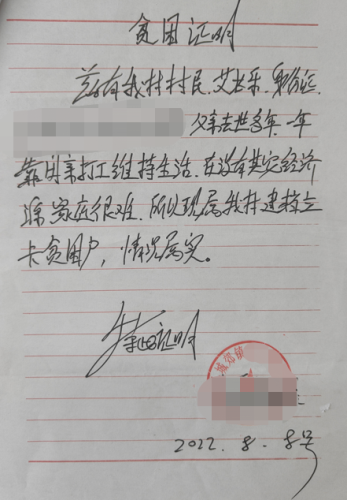 贫困证明
兹有我村村民,艾世乐,身份证,
父亲去世多年,一年
靠母亲打工维持生活,在没有其实经济
源,家庭很难,所以现属我村建档立
卡贫困户,情况属实。
特此证明
2022.8.8号